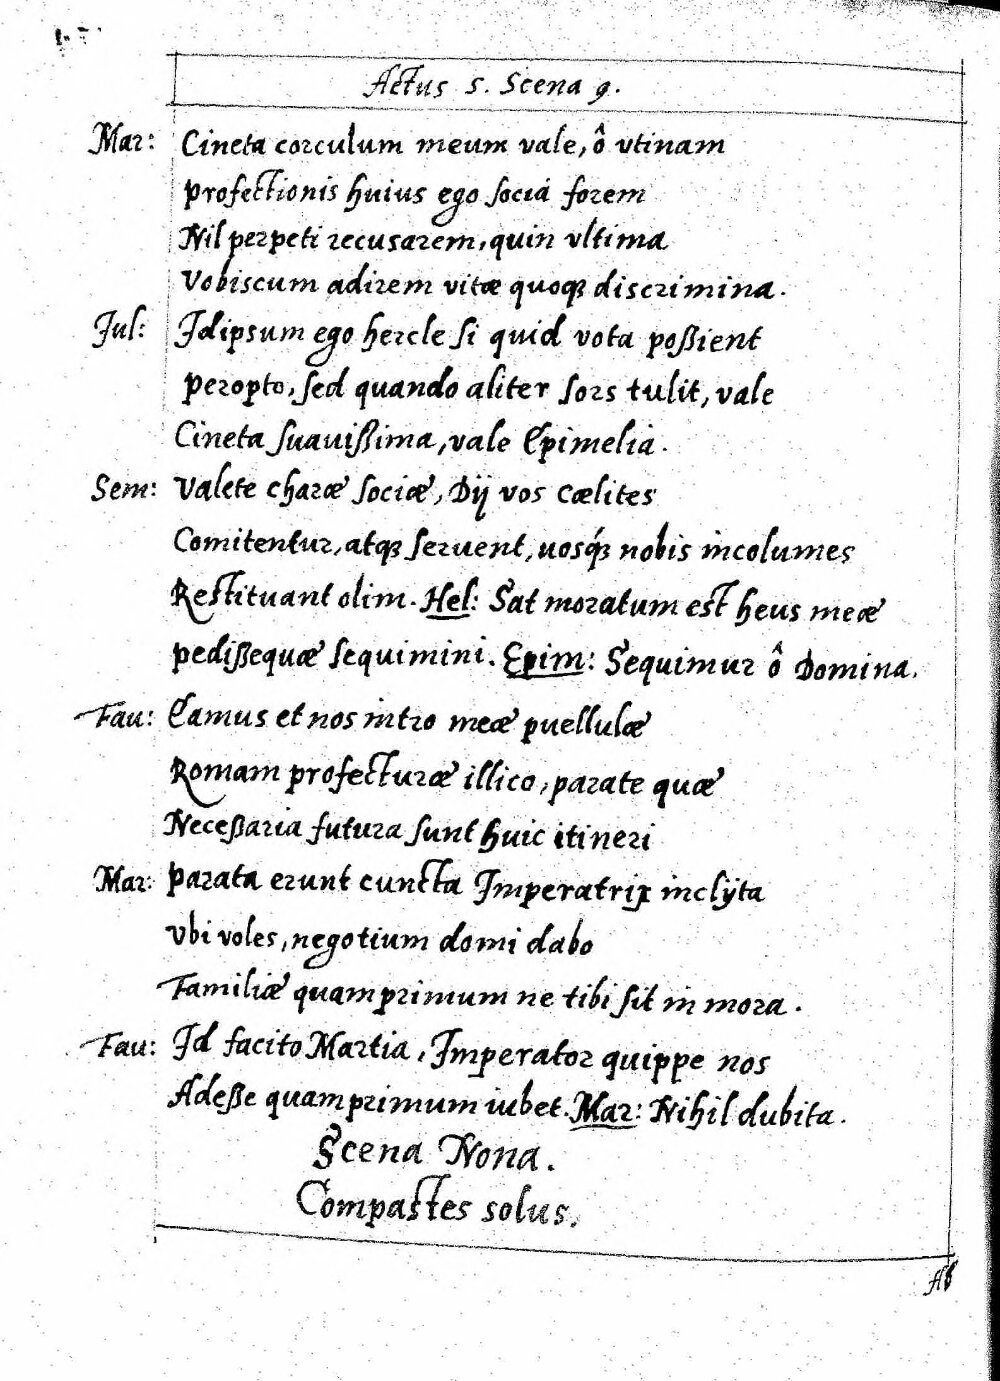 Actus 5. Scena 9.
Mar: Cineta corculum meum vale, ô vtinam
profectionis huius ego sociá forem
Nil perpeti recusarem, quin vltima
Vobiscum adirem vitæ quoqꝫ discrimina.
Jul: Jdipsum ego hercle si quid vota poßient
peropto, sed quando aliter sors tulit, vale
Cineta suauißima, vale Epimelia.
Sem: Valete charæ sociæ, Dij vos cælites
Comitentur, atqꝫ seruent, uosqꝫ́ nobis incolumes
Restituant olim. Hel: Sat moratum est heus meæ
pedißequæ sequimini. Epim: Sequimur ô Domina.
Fau: Eamus et nos intro meæ puellulæ
Romam profecturæ illico, parate quæ
Neceßaria futura sunt huic itineri
Mar: parata erunt cuncta Jmperatrix inclÿta
Vbi voles, negotium domi dabo
Familiæ quamprimum ne tibi sit in mora.
Fau: Jd facito Martia, Jmperator quippe nos
Adeße quamprimum iubet. Mar: Nihil dubita.
Scena Nona.
Compastes solus.